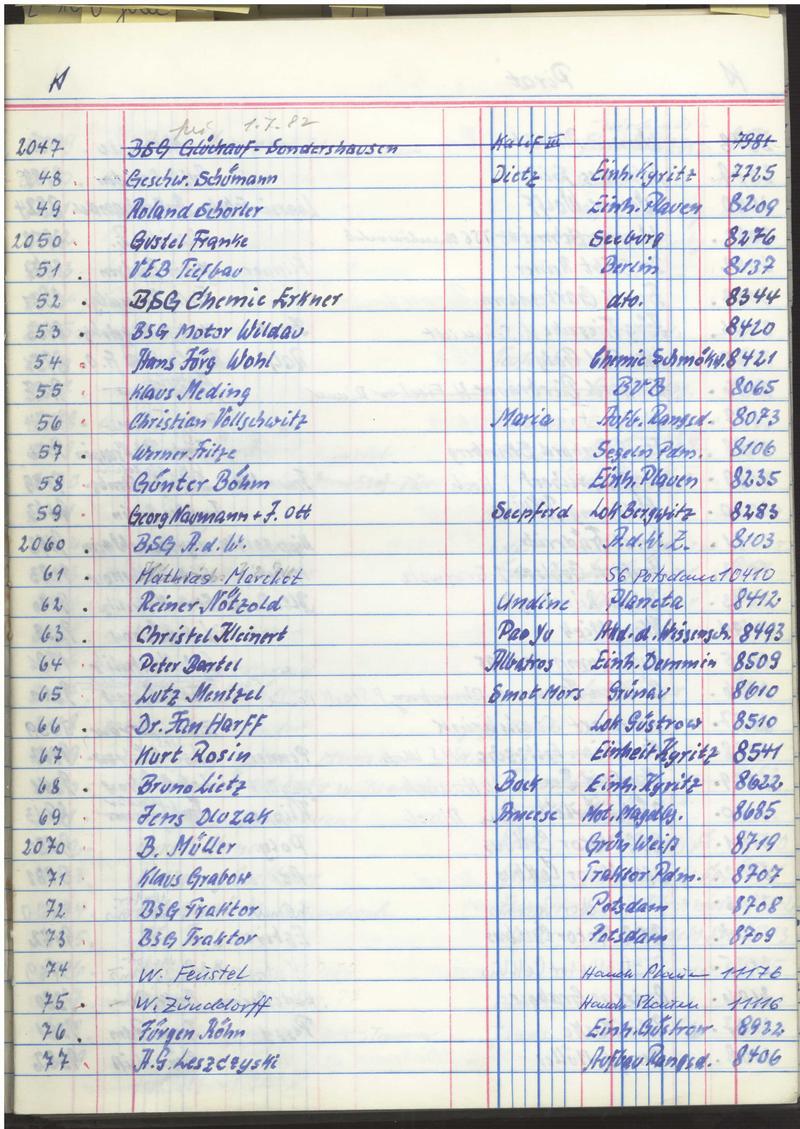 A
frei 1.7.82
2047 BSG Glückauf-Sondershausen Kalif III 7981
48 Geschw. Schümann Dietz Einh. Kyritz 7725
49 Roland Schörler Einh. Plauen 8209
2050 Gustel Franke Seeburg 8276
51 . VEB Tiefbau Berlin 8137
52 . BSG Chemie Erkner dto. 8344
53 . BSG Motor Wildau 8420
54 . Hans Jörg Wohl Chemie Schmökw. 8421
55 . Klaus Meding BVB 8065
56 . Christian Vollschwitz Maria Aufb. Rangsd. 8073
57 . Werner Fritze Segeln Pdm. 8106
58 Günter Böhm Einh. Plauen 8235
59 Georg Naumann + J. Ott Seepferd Lok Bergwitz 8283
2060 . BSG A.d.W. A.d.W. Z. 8103
61 . Mathias Marchot SG Potsdam 10410
62 . Reiner Nötzold Undine Planeta 8412
63 . Christel Kleinert Pao Yu Akd. d. Wissensch. 8493
64 . Peter Bartel Albatros Einh. Demmin 8509
65 . Lutz Mentzel Smot Mors Grünau 8610
66 . Dr. Jan Harff Lok Güstrow 8510
67 . Kurt Rosin Einheit Kyritz 8541
68 . Bruno Lietz Bock Einh. Kyritz 8622
69 . Jens Dluzak Mot. Magdbg. 8685
2070 . B. Müller Grün Weiß 8719
71 . Klaus Grabow Traktor Pdm. 8707
72 . BSG Traktor Potsdam 8708
73 . BSG Traktor Potsdam 8709
74 W. Feustel 11176
75 . W. Zünddorff 11116
76 . Jürgen Röhn Einh. Güstrow 8932
77 . H.G. Leszczyski Aufbau Rangsd. 8406